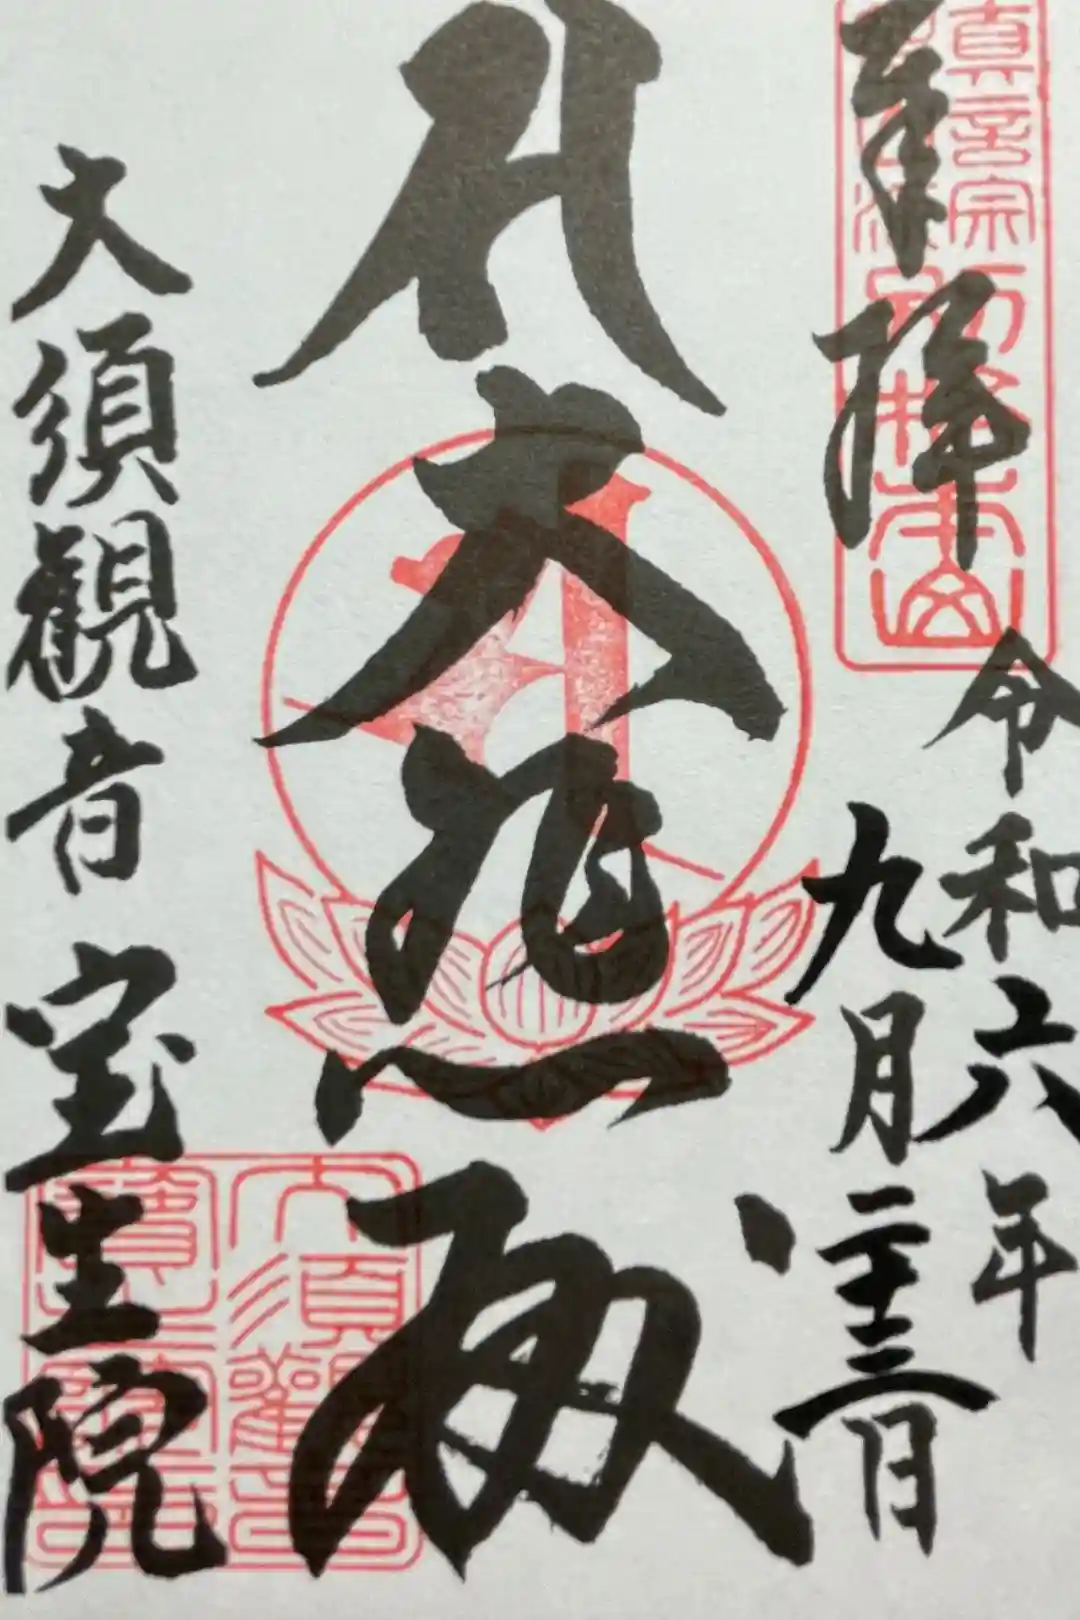 奉拝
令和六年
九月二十三日
大悲殿
大須観音 宝生院
真言宗
大須観音
寶生院